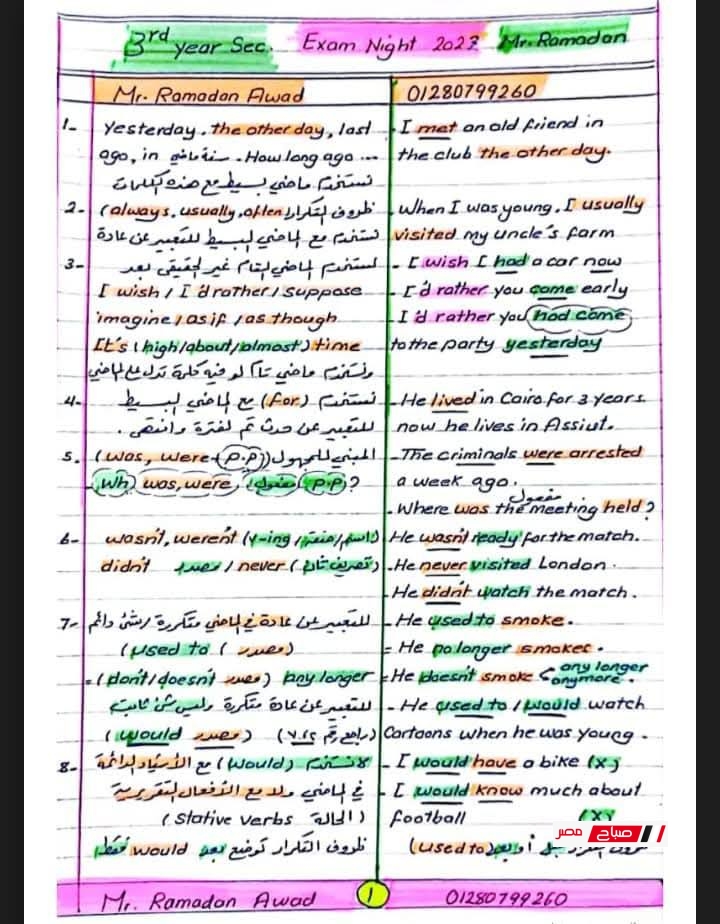 3rd year Sec. Exam Night 2023 Mr. Ramadan
Mr. Ramadan Awad 01280799260
1- Yesterday. the other day, last
ago, in سنة ماضي. How long ago ...
نستخدم ماضي بسيط مع هذه الكلمات
- I met an old friend in
the club the other day.
2- ظروف التكرار (always, usually, often
نستخدم مع الماضي البسيط للتعبير عن عادة
- When I was young, I usually
visited my uncle's farm
3- نستخدم الماضي التام غير الحقيقى بعد
I wish / I'd rather / suppose
imagine / as if / as though
It's (high/about/almost) time
ونستخدم ماضي تام لو فيه كلمة تدل على الماضي
- I wish I had a car now
- I'd rather you came early
- I'd rather you had come
to the party yesterday
4- نستخدم (for) مع الماضي البسيط
للتعبير عن حدث تم لفترة وانتهى.
- He lived in Cairo for 3 years
now he lives in Assiut.
5. المبني للمجهول (was, were + p.p)
Wh was, were (مفعول) p.p ?
- The criminals were arrested
a week ago.
مفعول
- Where was the meeting held?
6- wasn't, weren't (v-ing / صفة / اسم)
didn't مصدر / never (تصريف ثاني)
- He wasn't ready for the match.
- He never visited London.
- He didn't watch the match.
7- للتعبير عن عادة في الماضي متكررة / شئ دائم
(used to (مصدر
= (don't/doesn't مصدر) any longer
للتعبير عن عادة متكررة وليس شئ ثابت
(would مصدر) (راجع رقم ٢،٧)
- He used to smoke.
= He no longer smokes.
= He doesn't smoke any longer
anymore.
- He used to / would watch
Cartoons when he was young.
8- لا نستخدم (would) مع الأشياء الدائمة
في الماضي ولا مع الأفعال التقريرية
(stative verbs الحالة)
ظروف التكرار توضع بعد would فقط
- I would have a bike (x)
- I would know much about
football (x)
أو بعد (used to)
صباح مصر
Mr. Ramadan Awad 1 01280799260